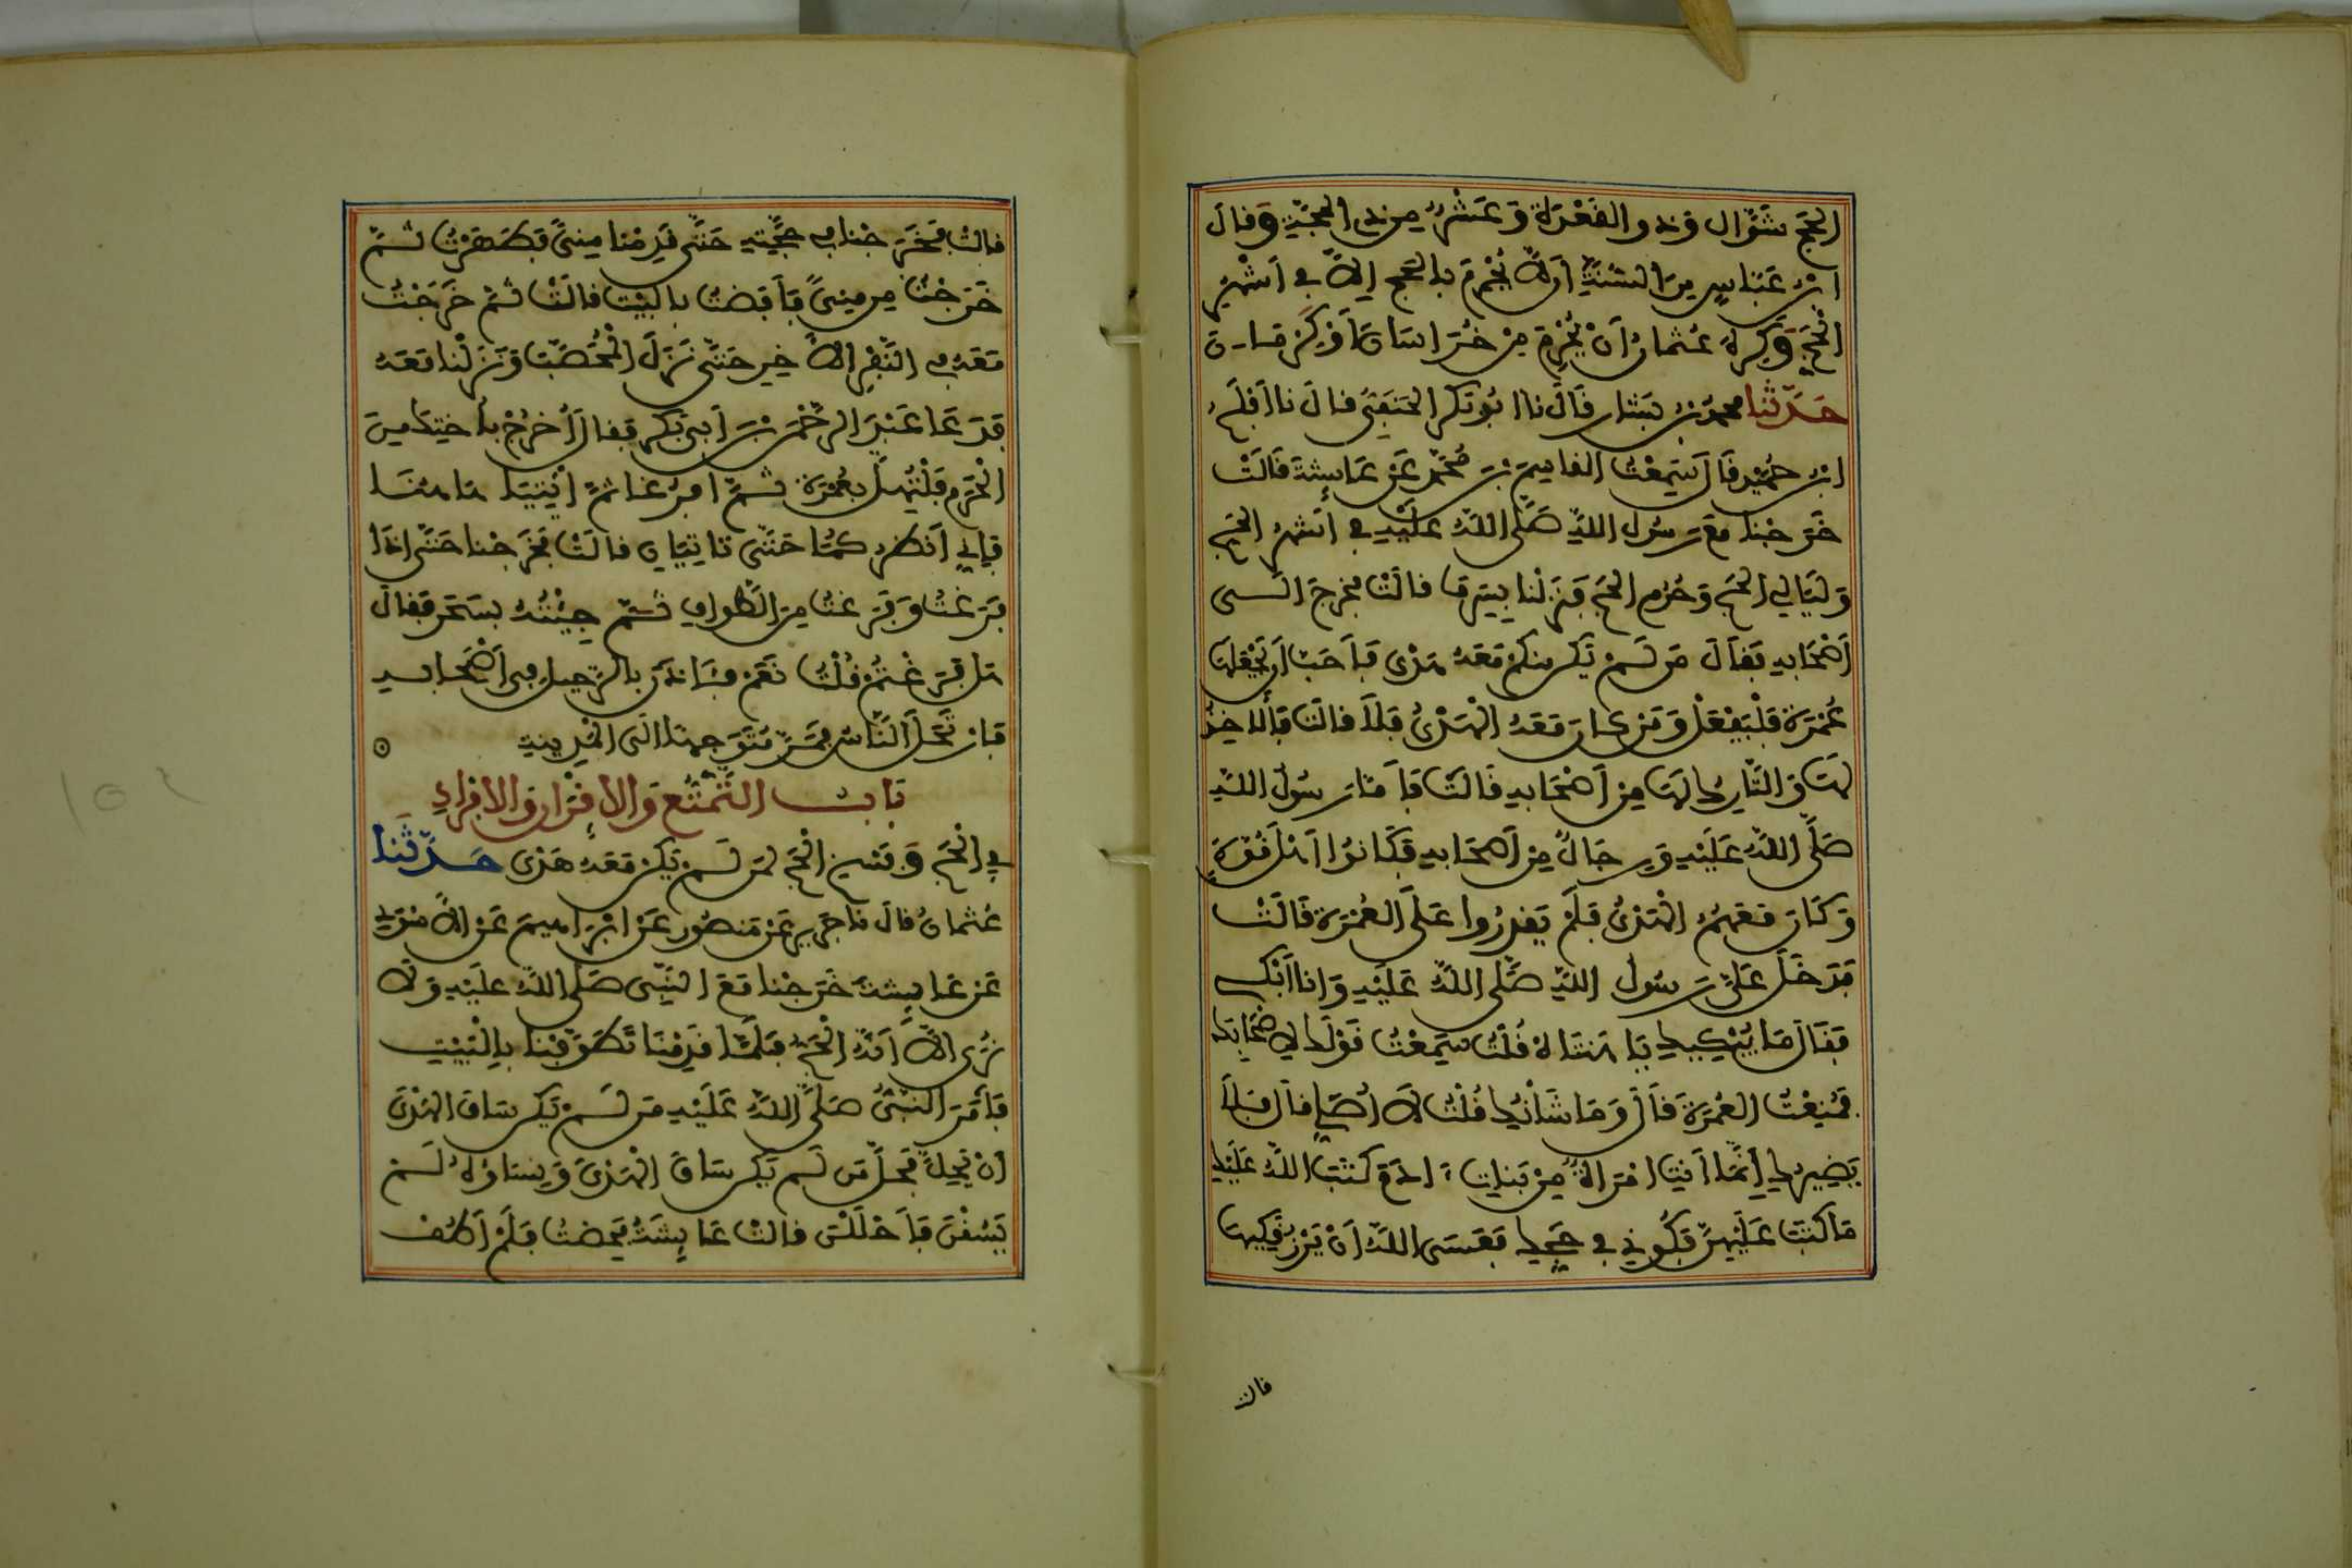 الحج شَوَّال وَذو القَعْدَة وَعَشْرٌ مِن ذِي الحجَّةِ وَقَالَ
ابْنُ عَبَّاسٍ مِنَ السُّنَّةِ أَن لَّا يُحْرِمَ بِالحَج إِلَّا فِي أَشْهُرِ
الْحَجِّ وَكَرِهَ عُثمانُ أَنْ يُحْرِمَ مِنْ خُرَاسَانَ أَوْ كِرْمَان
حَدَّثَنا محمدُ بْنُ بَشَّار قَالَ نا أَبُو بَكر الحَنَفِيّ قَالَ نا أَفْلَحُ
ابْنُ حُمَيْد قَالَ سَمِعْتُ القَاسِمَ بْنَ مُحَمَّد عَنْ عَائِشَةَ قَالَتْ
خَرَجْنَا مَعَ رَسُول اللهِ صَلَّى اللهُ عَلَيْهِ فِي أَشْهُرِ الحَجِّ
وَلَيَالِي الحَجِّ وَحُرُم الحَجِّ فَنَزَلْنَا بِسَرِفَا قَالَتْ فخرجَ الَى
أَصْحَابِهِ فَقَالَ مَن لَّمْ يَكُن مِنكُمْ مَعَهُ هَدْي فَأَحَبَّ أَن يَجْعَلَهَا
عُمْرَةً فَلْيَفْعَلْ وَمَن كَانَ مَعَهُ الْهَدْيُ فَلَا قَالَتْ فَالآخِذُ
بِهَا وَالتَّارِكُ لَهَا مِنْ أَصْحَابِهِ قَالَتْ فَأَمَّا رَسُولُ اللهِ
صَلَّى اللهُ عَلَيْهِ وَرِجَالٌ مِنْ أَصْحَابِهِ فَكَانُوا أَهْلَ قُوَّةٍ
وَكَانَ مَعَهُمُ الْهَدْيُ فَلَمْ يَقْدِرُوا عَلَى العُمْرَةِ قَالَتْ
فَدَخَلَ عَلَيَّ رَسُولُ اللهِ صَلَّى اللهُ عَلَيْهِ وَأنا أَبْكِي
فَقَالَ مَا يُبْكِيكِ يَا هَنْتَاهْ قُلْتُ سَمِعْتُ قَوْلَكَ لِأَصْحَابِكَ
فَمُنِعْتُ العُمْرَةَ قَالَ وَمَا شَأْنُكِ قُلْتُ لَا أُصَلِّي قَالَ فَلَا
يَضِيرُكِ إِنَّمَا أَنْتِ امْرَأَةٌ مِنْ بَنَاتِ ءَادَمَ كَتَبَ اللهُ عَلَيْكِ
مَا كَتَبَ عَلَيْهِنَّ فَكُونِي فِي حَجِّكِ فَعَسَى اللهُ أَنْ يَرْزُقَكِيهَا
قالت
قالتْ فَخَرَجْنَا فِي حَجَّتِهِ حَتَّى قَدِمْنَا مِنىً فَطَهَرْتُ ثُمَّ
خَرَجْتُ مِن مِنىً فَأَفَضْتُ بِالبَيْتِ قَالَتْ ثُمَّ خَرَجْتُ
مَعَهُ فِي النَّفْرِ الآخِرِ حَتَّى نَزَلَ الْمُحَصَّبَ وَنَزَلْنَا مَعَهُ
فَدَعَا عَبْدَ الرَّحْمَنِ بْنَ أَبِي بَكْرٍ فَقَالَ أُخْرُجْ بِأُخْتِكَ مِنَ
الْحَرَمِ فَلْتُهِلَّ بِعُمْرَةٍ ثُمَّ افْرُغَا ثُمَّ ائْتِيَا هَاهُنَا
فَإِنِّي أَنْظُرُكُمَا حَتَّى تَاتِيَانِ قَالَتْ فَخَرَجْنَا حَتَّى إِذَا
فَرَغْتُ وَفَرَغْتُ مِنَ الطَّوَافِ ثُمَّ جِئْتُهُ بِسَحَرَ فَقَالَ
هَلْ فَرَغْتُمْ قُلْتُ نَعَمْ فَآذَنَ بِالرَّحِيلِ فِي أَصْحَابِهِ
فَارْتَحَلَ النَّاسُ فَمَرَّ مُتَوَجِهاً إِلَى الْمَدِينَةِ
بَابُ التَّمَتُّعِ وَالإِقْرَانِ وَالإِفْرَادِ
فِي الْحَجِّ وَفَسْخِ الْحَجِّ لِمَن لَّمْ يَكُنْ مَعَهُ هَدْي حَدَّثَنَا
عُثمانُ قَالَ نا جَرِيرٌ عَنْ مَنصُورٍ عَنْ إِبْرَاهِيمَ عَنِ الأَسْوَدِ
عَنْ عَائِشَةَ خَرَجْنَا مَعَ النَّبِيِّ صَلَّى اللهُ عَلَيْهِ وَلَا
نُرَى إِلَّا أَنَّهُ الْحَجُّ فَلَمَّا قَدِمْنَا تَطَوَّفْنَا بِالْبَيْتِ
فَأَمَرَ النَّبِيُّ صَلَّى اللهُ عَلَيْهِ مَن لَّمْ يَكُن سَاقَ الهَدْيَ
أَنْ يَحِلَّ فَحَلَّ مَن لَّمْ يَكُن سَاقَ الْهَدْيَ وَنِسَاؤُهُ لَمْ
يَسُقْنَ فَأَحْلَلْنَ قَالَتْ عَائِشَةُ فَحِضْتُ فَلَمْ أَطُفْ